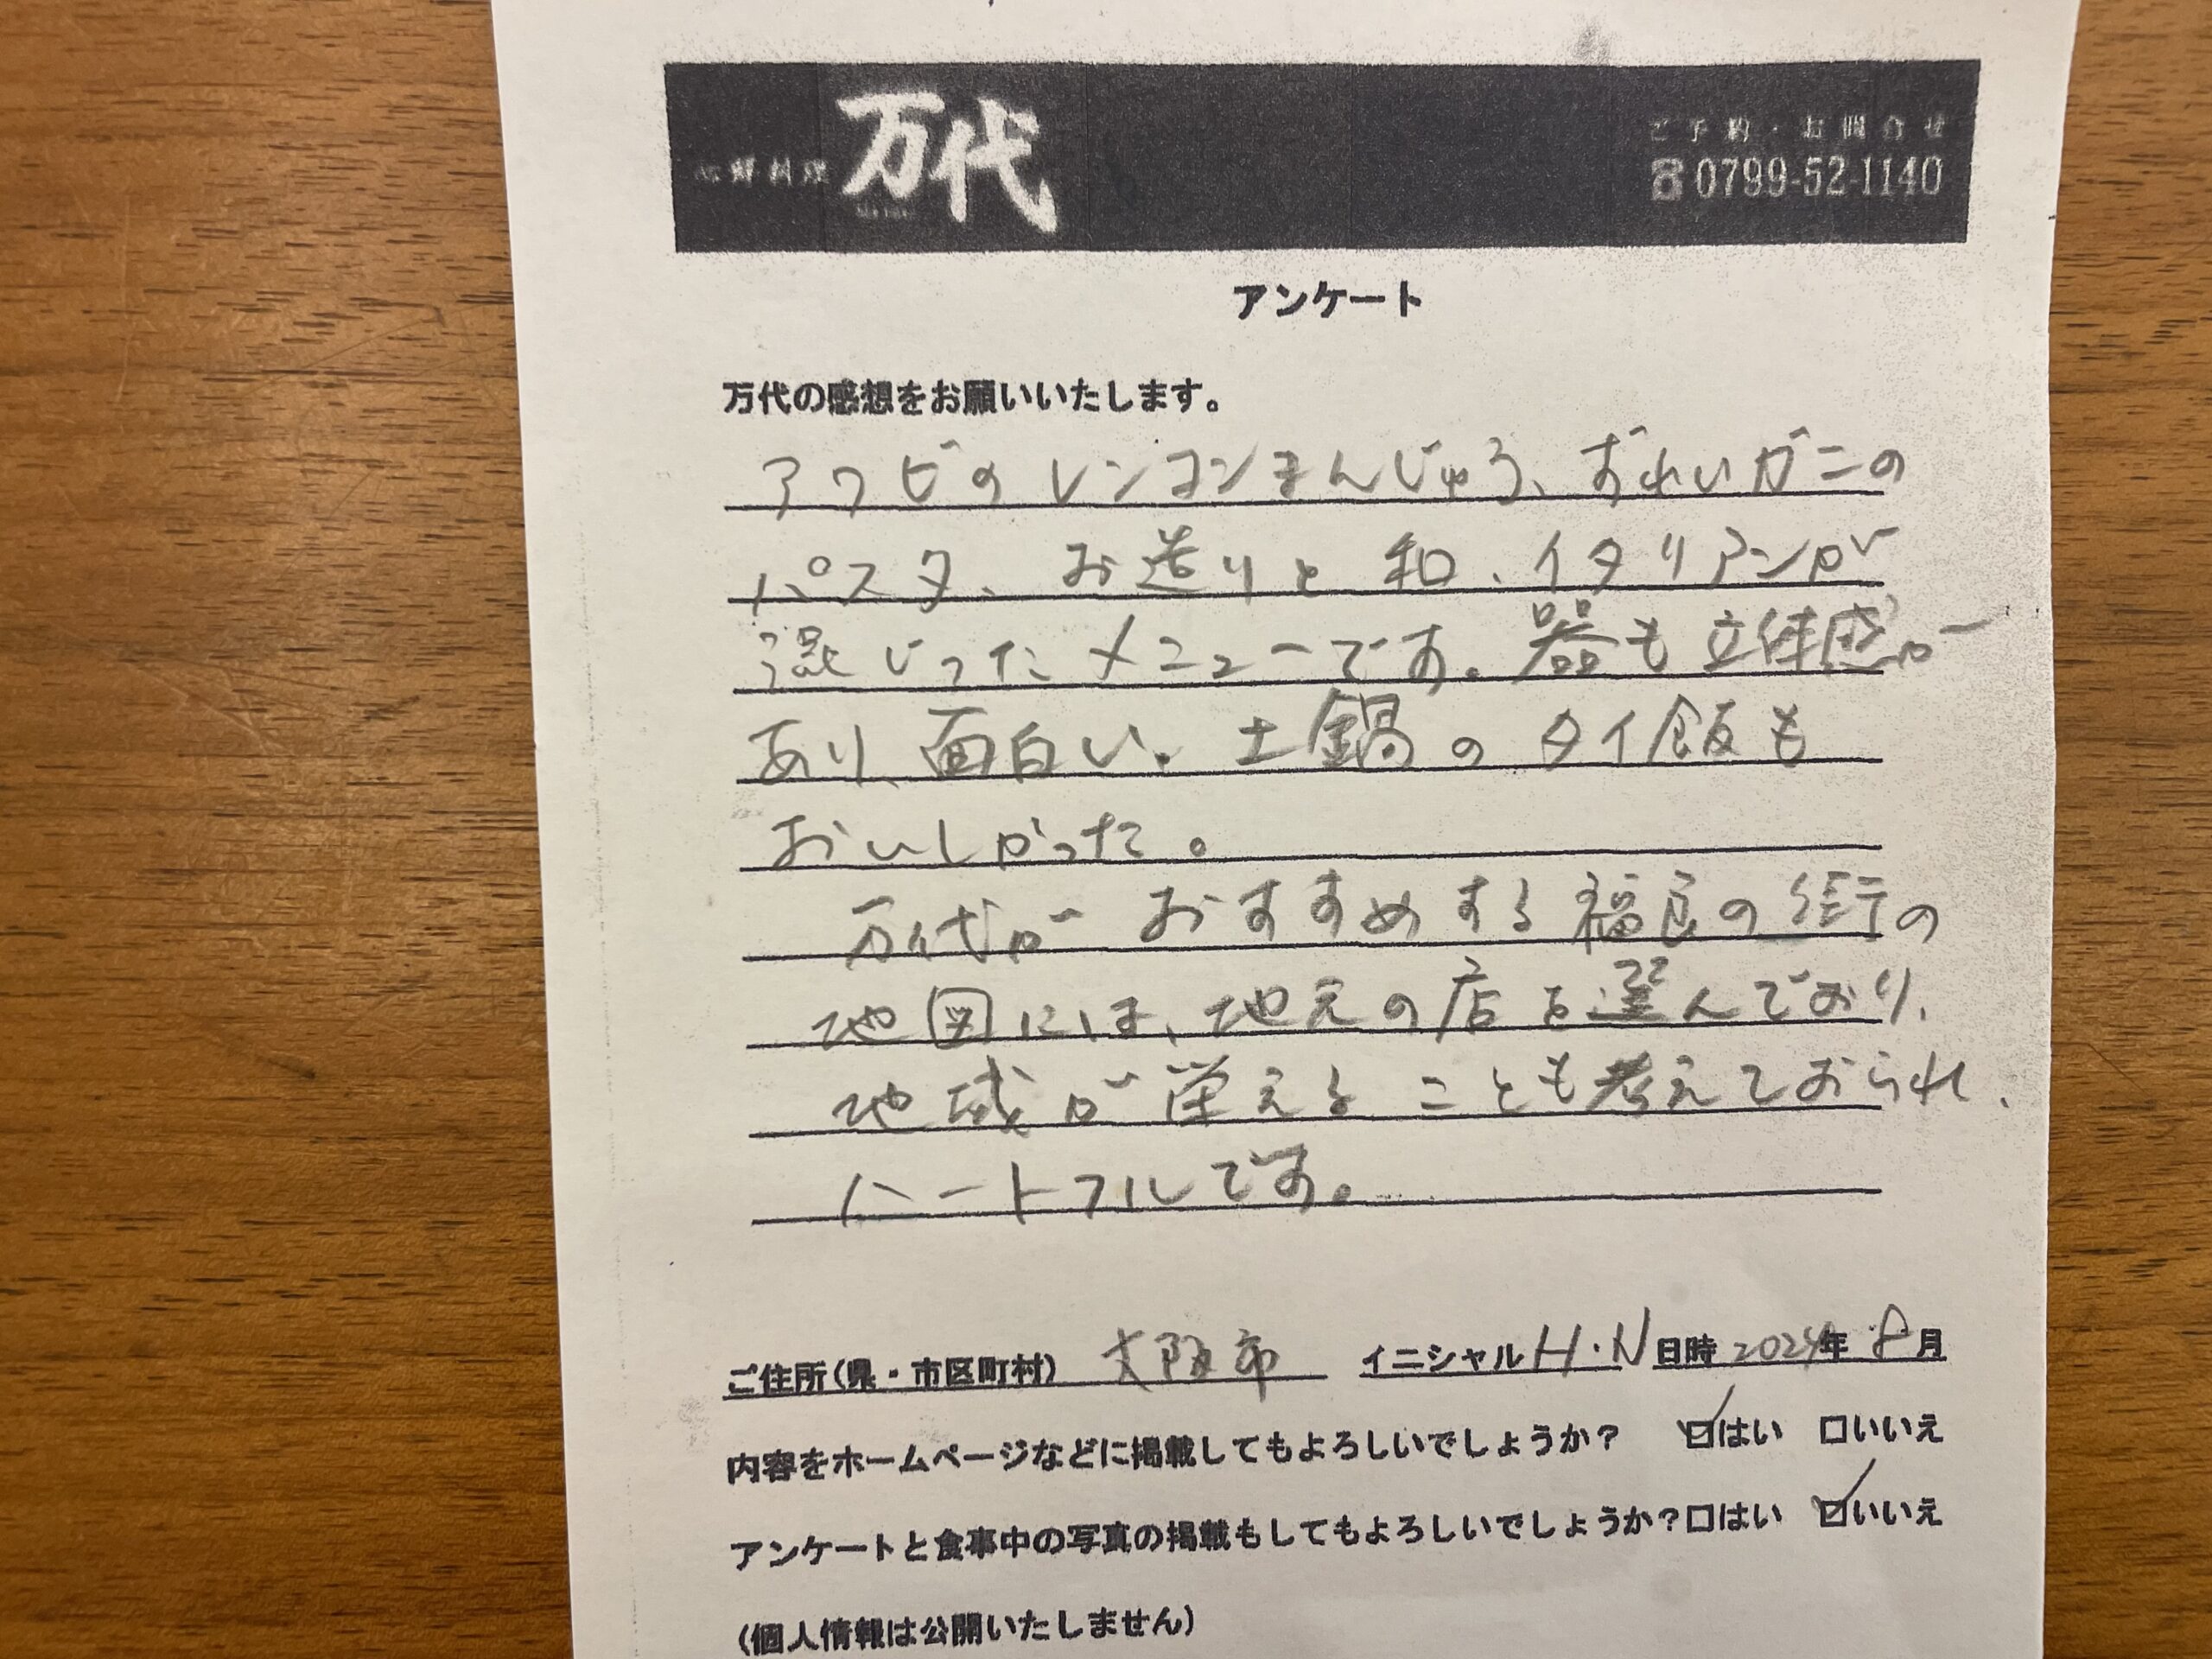 万代
ご予約・お問合せ
☎0799-52-1140
アンケート
万代の感想をお願いいたします。
アワビのレンコンまんじゅう、おれいガニの
パスタ、お造りと和、イタリアンが
混じったメニューです。器も立体感が
あり、面白い。土鍋のタイ飯も
おいしかった。
万代が おすすめする福良の街の
地図には、地元の店を選んでおり、
地域が栄えることも考えておられ、
ハートフルです。
ご住所(県・市区町村) 大阪市 イニシャル H・N 日時 2024年 8月
内容をホームページなどに掲載してもよろしいでしょうか? ☑はい □いいえ
アンケートと食事中の写真の掲載もしてもよろしいでしょうか?□はい ☑いいえ
(個人情報は公開いたしません)